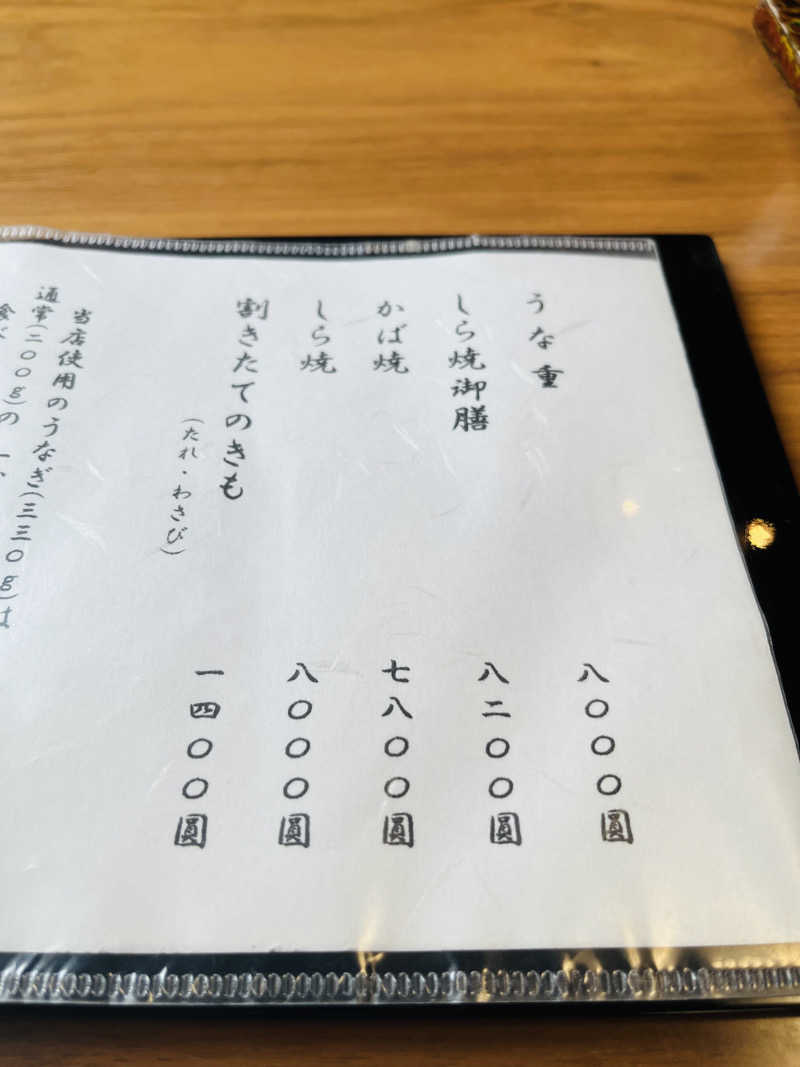 うな重 八〇〇〇圓
しら焼御膳 八二〇〇圓
かば焼 七八〇〇圓
しら焼 八〇〇〇圓
割きたてのきも 一四〇〇圓
(たれ・わさび)
当店使用のうなぎ(三三〇g)は
通常(二〇〇g)の